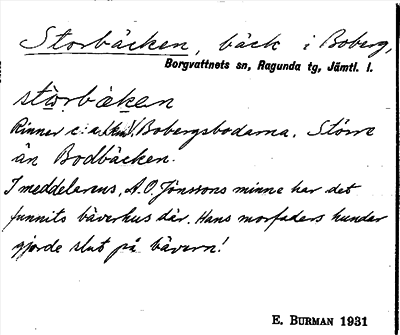 Storbäcken, bäck i Boberg,
Borgvattnets sn, Ragunda tg, Jämtl. l.
stòrbæken
Rinner c:a 1 km V Bobergsbodarna. Större
än Bodbäcken.
I meddelarens, A.O. Jonssons minne har det
funnits bäverhus där. Hans morfaders hundar
gjorde slut på bävern!
E. BURMAN 1931